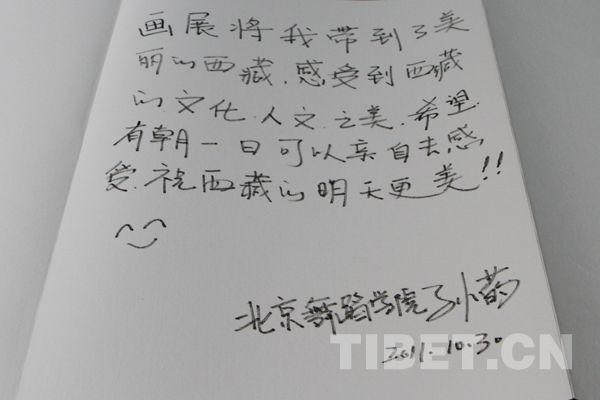 画展将我带到了美
丽的西藏.感受到西藏
的文化.人文.之美.希望
有朝一日可以亲自去感
受.祝西藏的明天更美!!
北京舞蹈学院 孙
2011.10.30
TIBET.CN